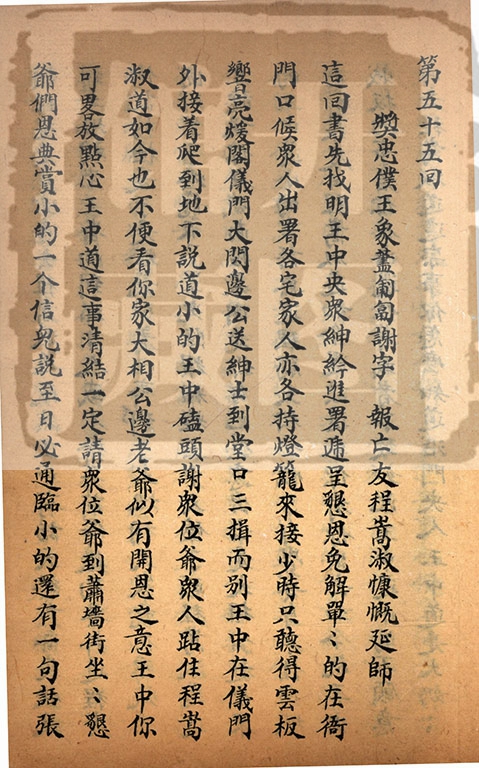 第五十五回
獎忠僕王象藎匍匐謝字　報亡友程嵩淑慷慨延師
這回書先找明王中央眾紳衿進署遞呈懇恩免解單〻的在衙
門口候眾人出署各宅家人亦各持燈籠來接少時只聽得雲板
響亮煖閣儀門大閃邊公送紳士到堂口三揖而別王中在儀門
外接着爬到地下說道小的王中磕頭謝眾位爺眾人跕住程嵩
淑道如今也不便看你家大相公邊老爺似有開恩之意王中你
可畧放點心王中道這事清結一定請眾位爺到蕭墻街坐〻懇
爺們恩典賞小的一个信兒說至日必通臨小的還有一句話張